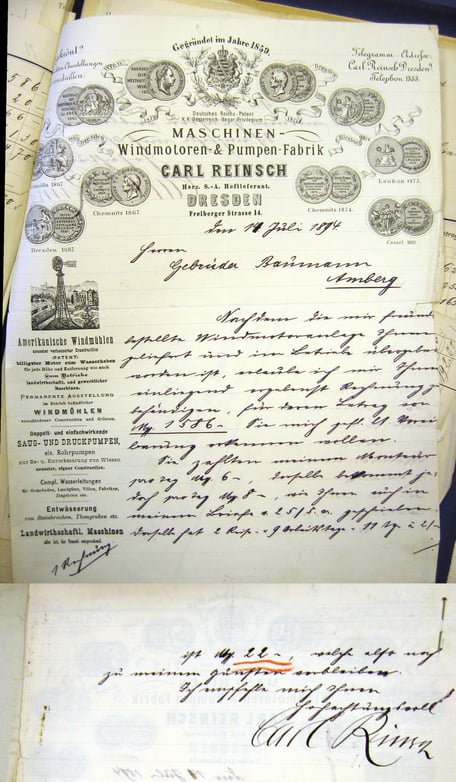 Gegründet im Jahre 1859.
Telegramm-Adresse:
Carl Reinsch Dresden
Telephon 1553.
Deutsches Reichs-Patent
K.K. Österreich-Ungar. Privilegium
MASCHINEN-
Windmotoren-& Pumpen-Fabrik
CARL REINSCH
Herz. S.-A. Hoflieferant.
DRESDEN
Freiberger Strasse 14.
Chemnitz 1867
Chemnitz 1874.
Lauban 1875.
Dresden 1887.
Cassel
den 14 Juli 1894
Herren
Gebrüder Baumann
Amberg
Nachdem die mir freund
bestellte Windmotoranlage Ihnen
geliefert und im Betriebe übergeben
worden ist, erlaube ich mir Ihnen
einliegend ergebenst Rechnung zu
behändigen, für deren Betrag von
Mg 1586- Sie mich gefl. lt. Verein
barung erkennen wollen.
Sie zahlten meinem Monteur
pro Tag Mg 6-, derselbe bekommt je
doch pro Tag Mg 8-, wie Ihnen auch in
meinem Briefe v. 25/5. a.
derselbe hat 2 Reise- 9 Arbeitstge- 11 Tg a 2/-
Amerikanische Windmühlen
neuester verbesserter Construction
(PATENT)
billigster Motor zum Wasserheben
für jede Höhe und Entfernung wie auch
zum Betriebe
landwirthschaftl. und gewerblicher
Maschinen.
PERMANENTE AUSSTELLUNG
im Betrieb befindlicher
WINDMÜHLEN
verschiedener Construction und Grössen.
Doppelt- und einfachwirkende
SAUG- UND DRUCKPUMPEN,
Rohrpumpen
zur Be- u. Entwässerung von Wiesen
neuester, eigner Construction.
Compl. Wasserleitungen
für Gemeinden, Landgüter, Villen, Fabriken,
Ziegeleien etc.
Entwässerung
von Steinbrüchen, Thongruben etc.
Landwirthschaftl. Maschinen
aller Art, der Neuzeit entsprechend.
1 Rechnung
ist Mg. 22-, welche also noch
zu meinen Gunsten verbleiben.
Ich empfehle mich Ihnen
Hochachtungsvoll
Carl Reinsch